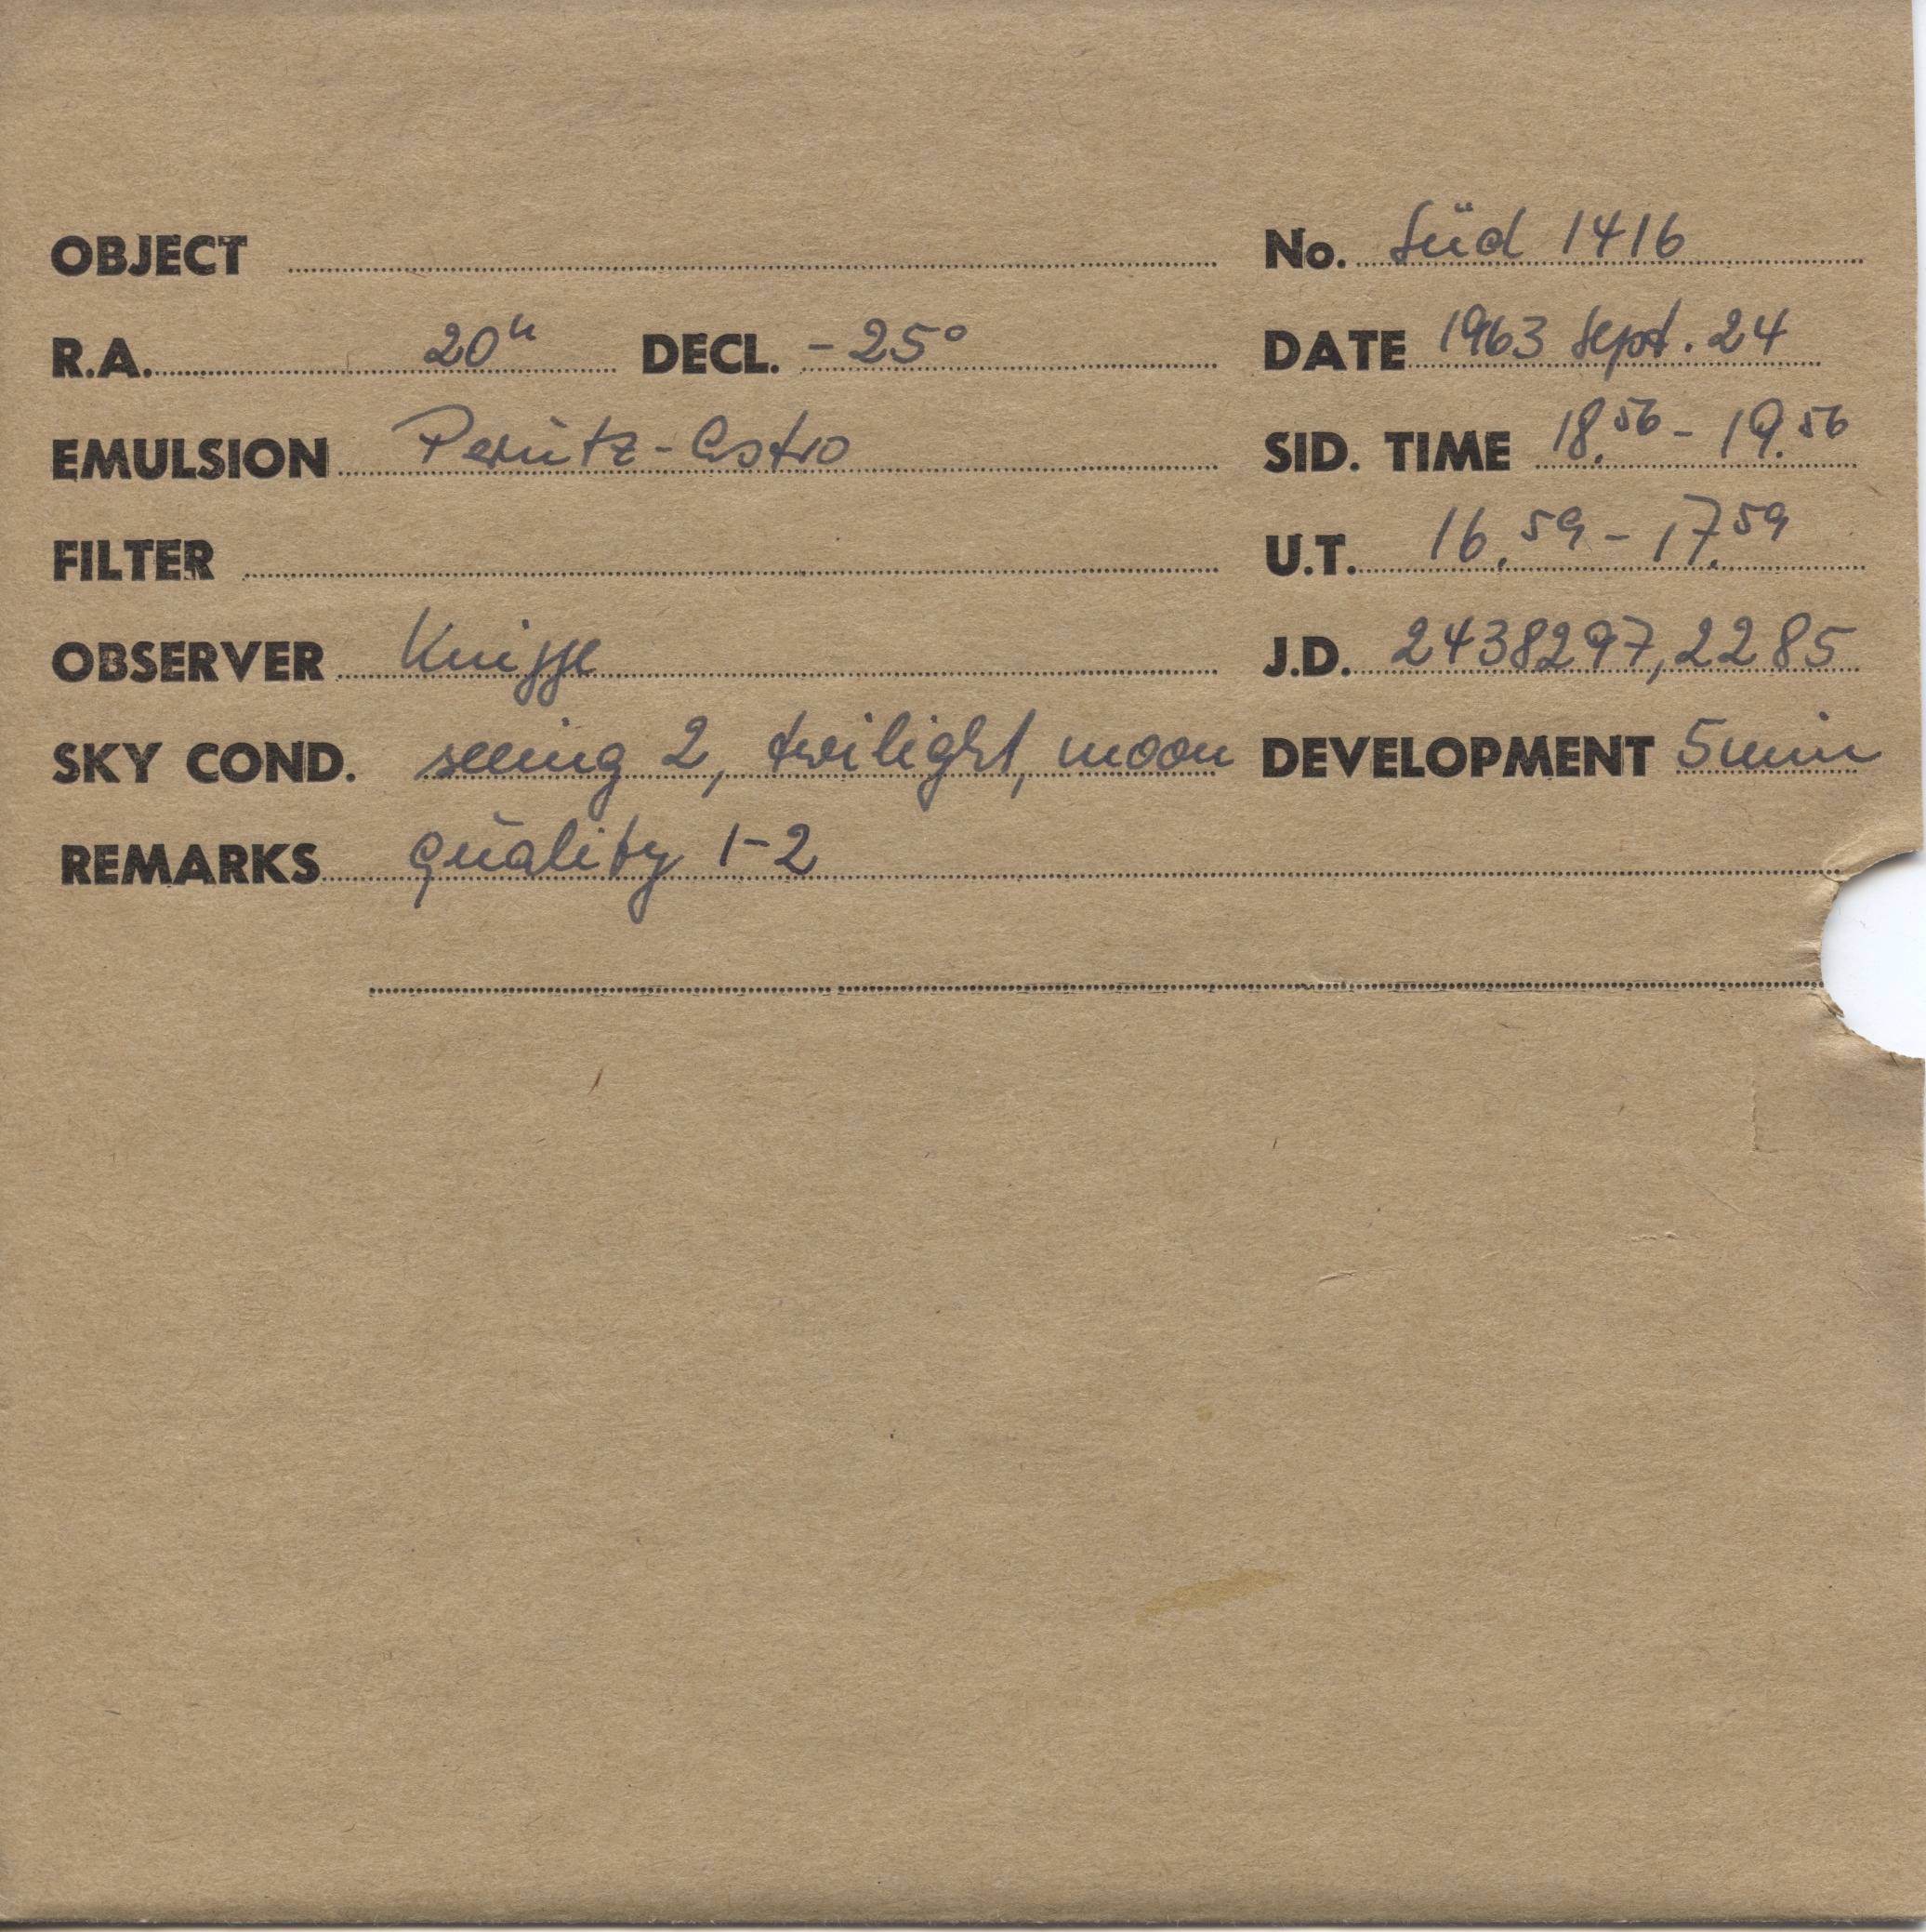 OBJECT No. Süd 1416
R.A. 20h DECL. -25° DATE 1963 Sept. 24
EMULSION Perutz-Astro SID. TIME 18.56 - 19.56
FILTER U.T. 16.59 - 17.59
OBSERVER Knigge J.D. 2438297,2285
SKY COND. seeing 2, twilight, moon DEVELOPMENT 5 min
REMARKS quality 1-2